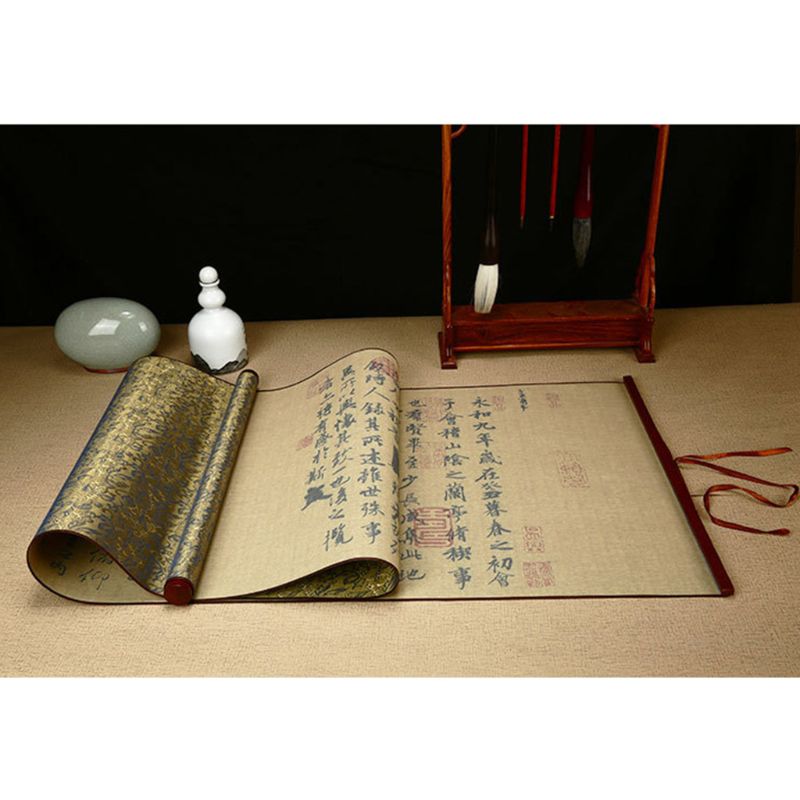 永和九年歲在癸丑暮春之初會
于會稽山陰之蘭亭脩稧事
也羣賢畢至少長咸集此地
敘時人録其所述雖世殊事
異所以興懷其致一也後之攬
者亦將有感於斯文
俯仰